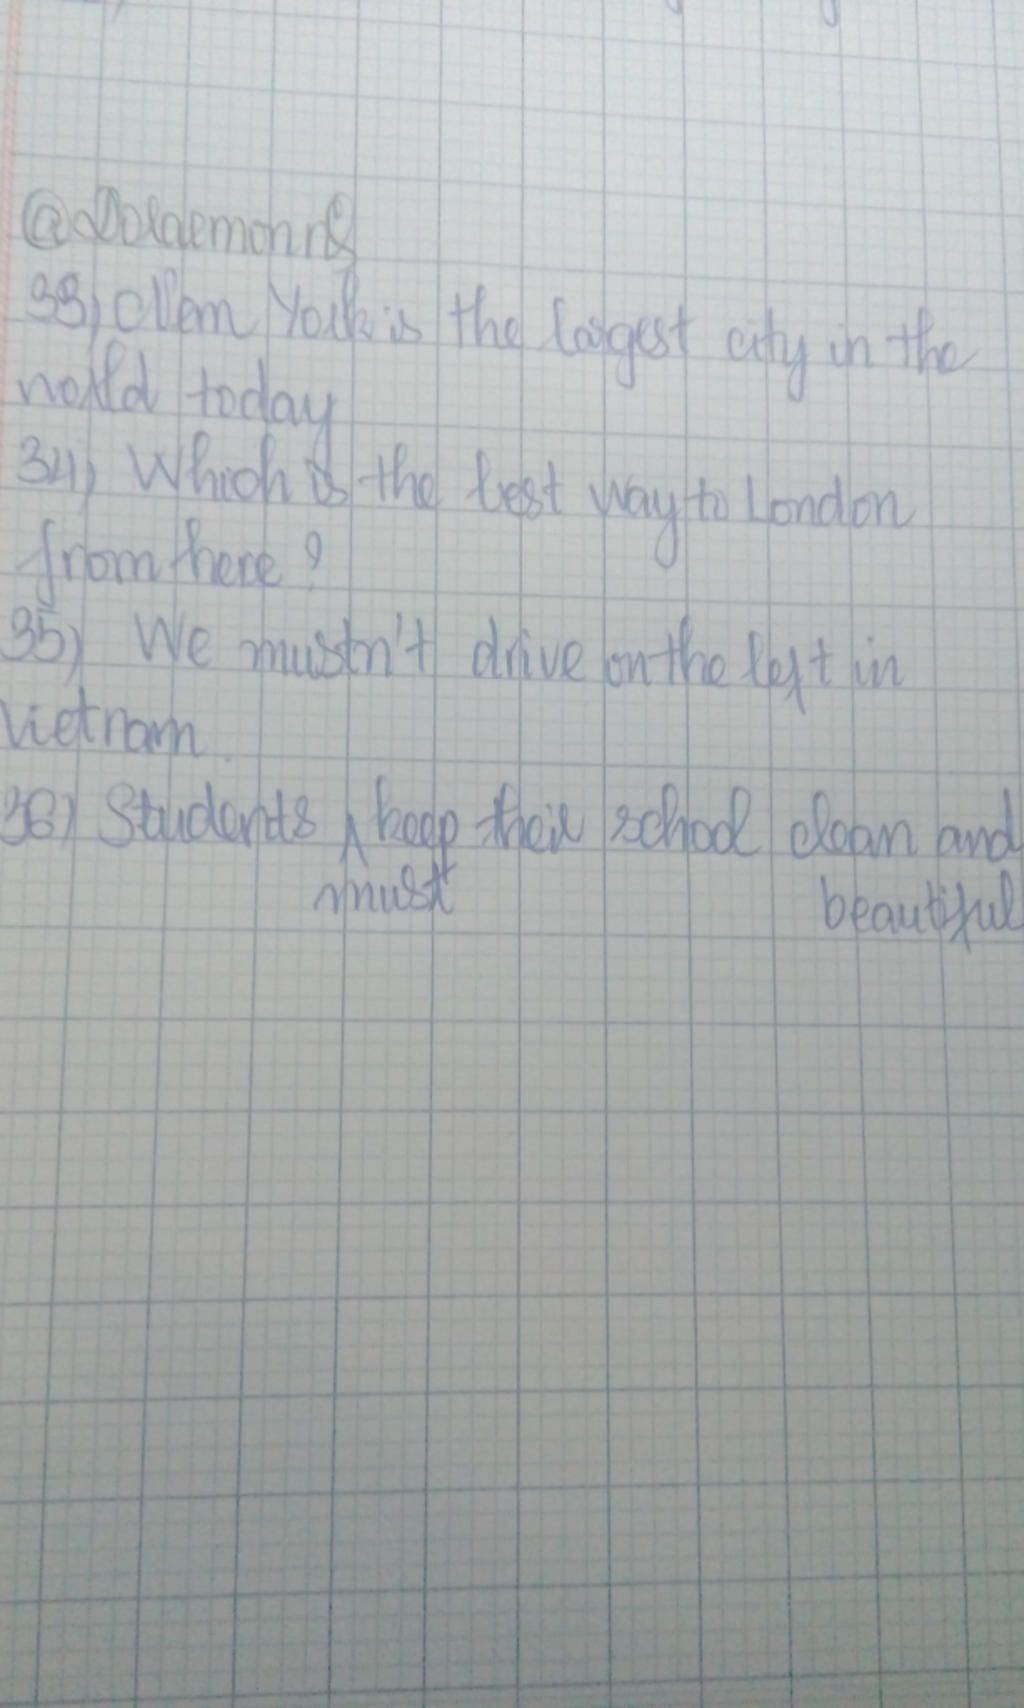 @doraemonn8
33) New York is the largest city in the
world today
34) Which is the best way to London
from here?
35) We mustn't drive on the left in
Vietnam.
36) Students must keep their school clean and
beautiful